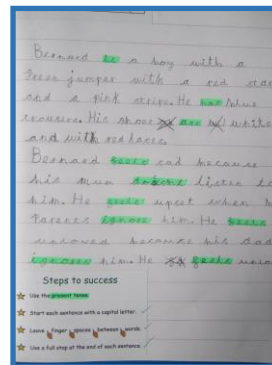 Bernard is a boy with a
green jumper with a red star
and a pink stripe. He has blue
trousers. His shoes are white
and with red laces.
Bernard feels sad because
his mum doesnt listen to
him. He feels upset when
Parents ignore him. He feels
unloved because his dad
ignores him. He feels
Steps to success
Use the present tense.
Start each sentence with a capital letter.
Leave finger spaces between words.
Use a full stop at the end of each sentence.